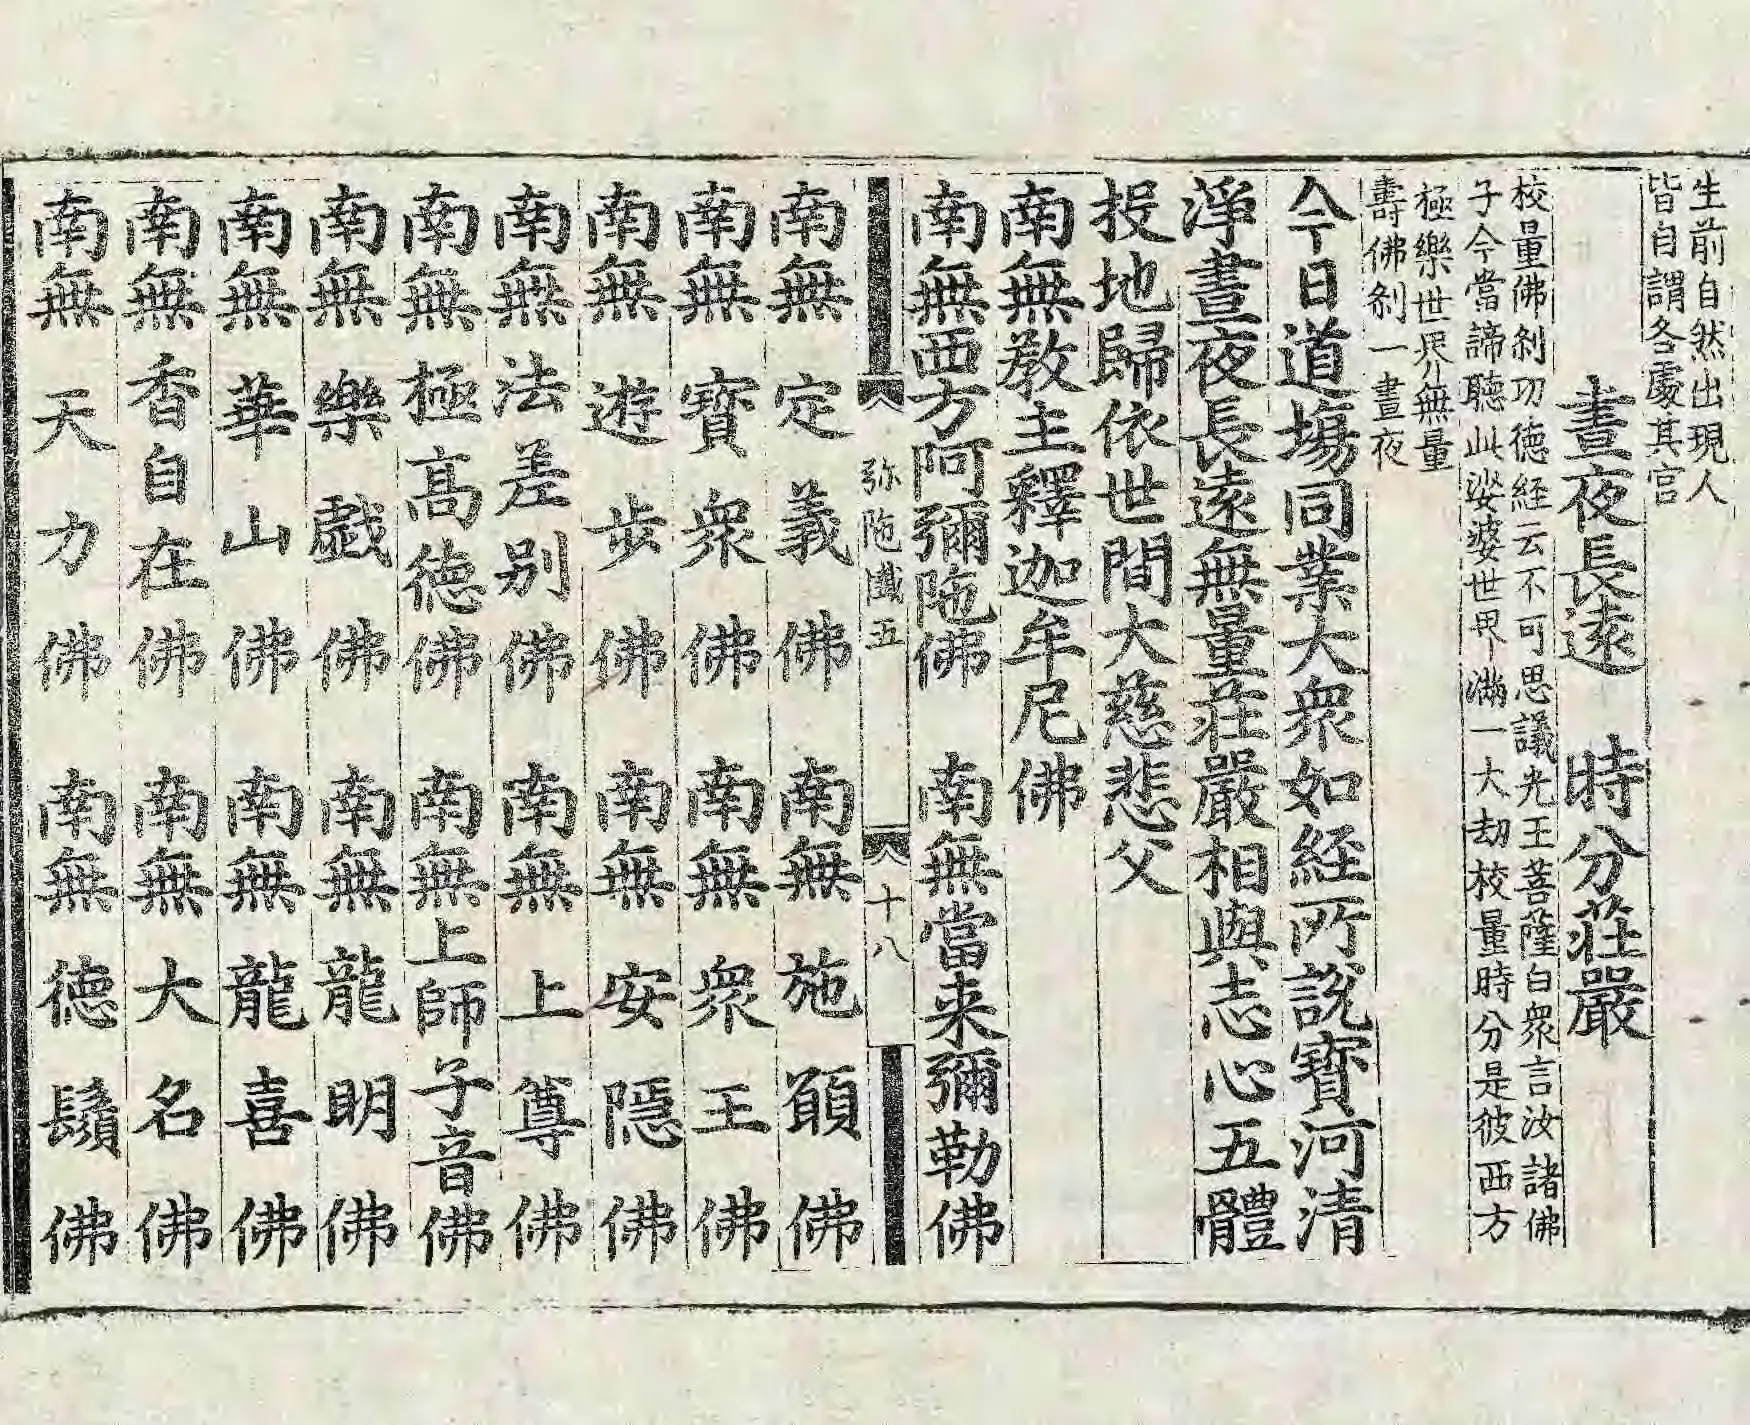 生前自然出現人
皆自謂各處其宮
晝夜長遠　時分莊嚴
校量佛刹功德経云不可思議光王菩薩白衆言汝諸佛
子今當諦聽此娑婆世界滿一大劫校量時分是彼西方
極樂世界無量
壽佛刹一晝夜
今日道場同業大衆如経所說寶河清
淨晝夜長遠無量莊嚴相與志心五體
投地歸依世間大慈悲父
南無教主釋迦牟尼佛
南無西方阿彌陁佛　南無當来彌勒佛
弥陁懺五　十八
南無定義佛　南無施願佛
南無寶衆佛　南無衆王佛
南無遊步佛　南無安隱佛
南無法差别佛　南無上尊佛
南無極髙德佛　南無上師子音佛
南無樂戯佛　南無龍明佛
南無華山佛　南無龍喜佛
南無香自在佛　南無大名佛
南無天力佛　南無德鬚佛